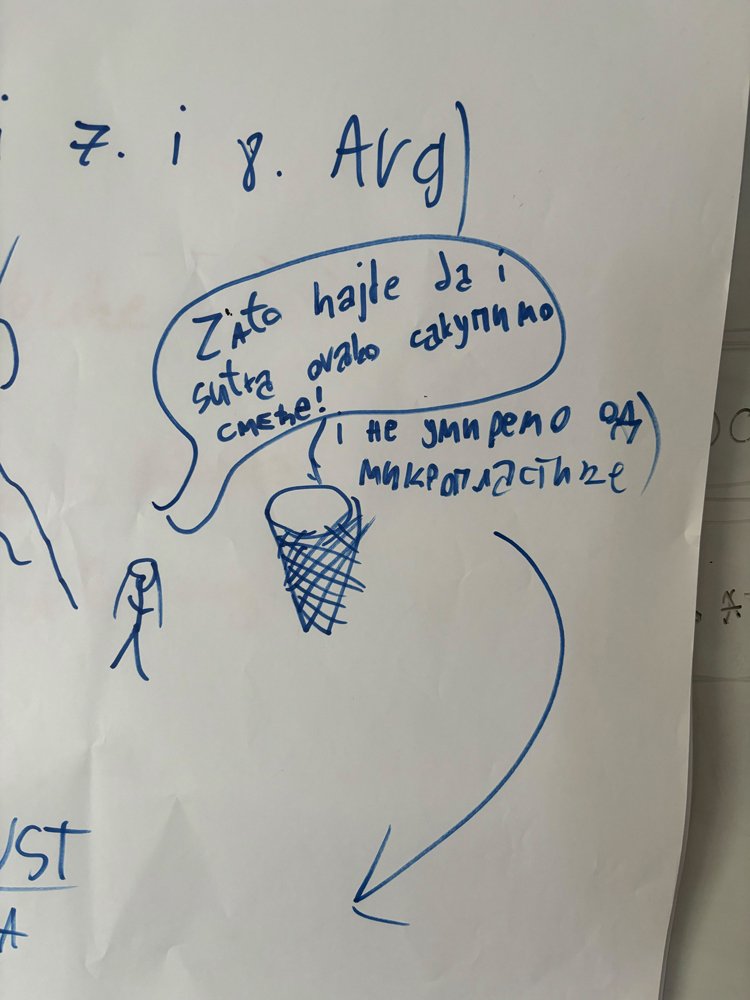 i 7. i 8. Avg)
Zato hajde da i
sutra ovako сакупимо
смеће!
i не умиремо од
микропластике)
UST
A